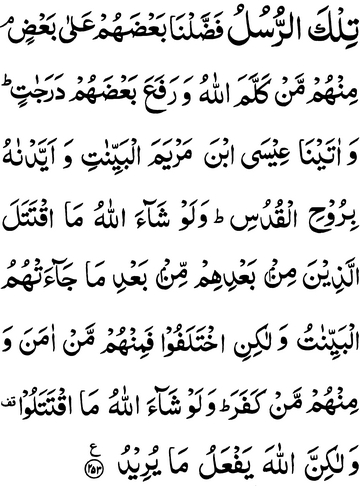 تِلْكَ الرُّسُلُ فَضَّلْنَا بَعْضَهُمْ عَلٰى بَعْضٍ ۘ
مِنْهُمْ مَّنْ كَلَّمَ اللّٰهُ وَ رَفَعَ بَعْضَهُمْ دَرَجٰتٍ ؕ
وَ اٰتَيْنَا عِيْسَى ابْنَ مَرْيَمَ الْبَيِّنٰتِ وَ اَيَّدْنٰهُ
بِرُوْحِ الْقُدُسِ ؕ وَ لَوْ شَآءَ اللّٰهُ مَا اقْتَتَلَ
الَّذِيْنَ مِنْۢ بَعْدِهِمْ مِّنْۢ بَعْدِ مَا جَآءَتْهُمُ
الْبَيِّنٰتُ وَ لٰكِنِ اخْتَلَفُوْا فَمِنْهُمْ مَّنْ اٰمَنَ وَ
مِنْهُمْ مَّنْ كَفَرَ ؕ وَ لَوْ شَآءَ اللّٰهُ مَا اقْتَتَلُوْا قف
وَ لٰكِنَّ اللّٰهَ يَفْعَلُ مَا يُرِيْدُ ع ۲۵۳